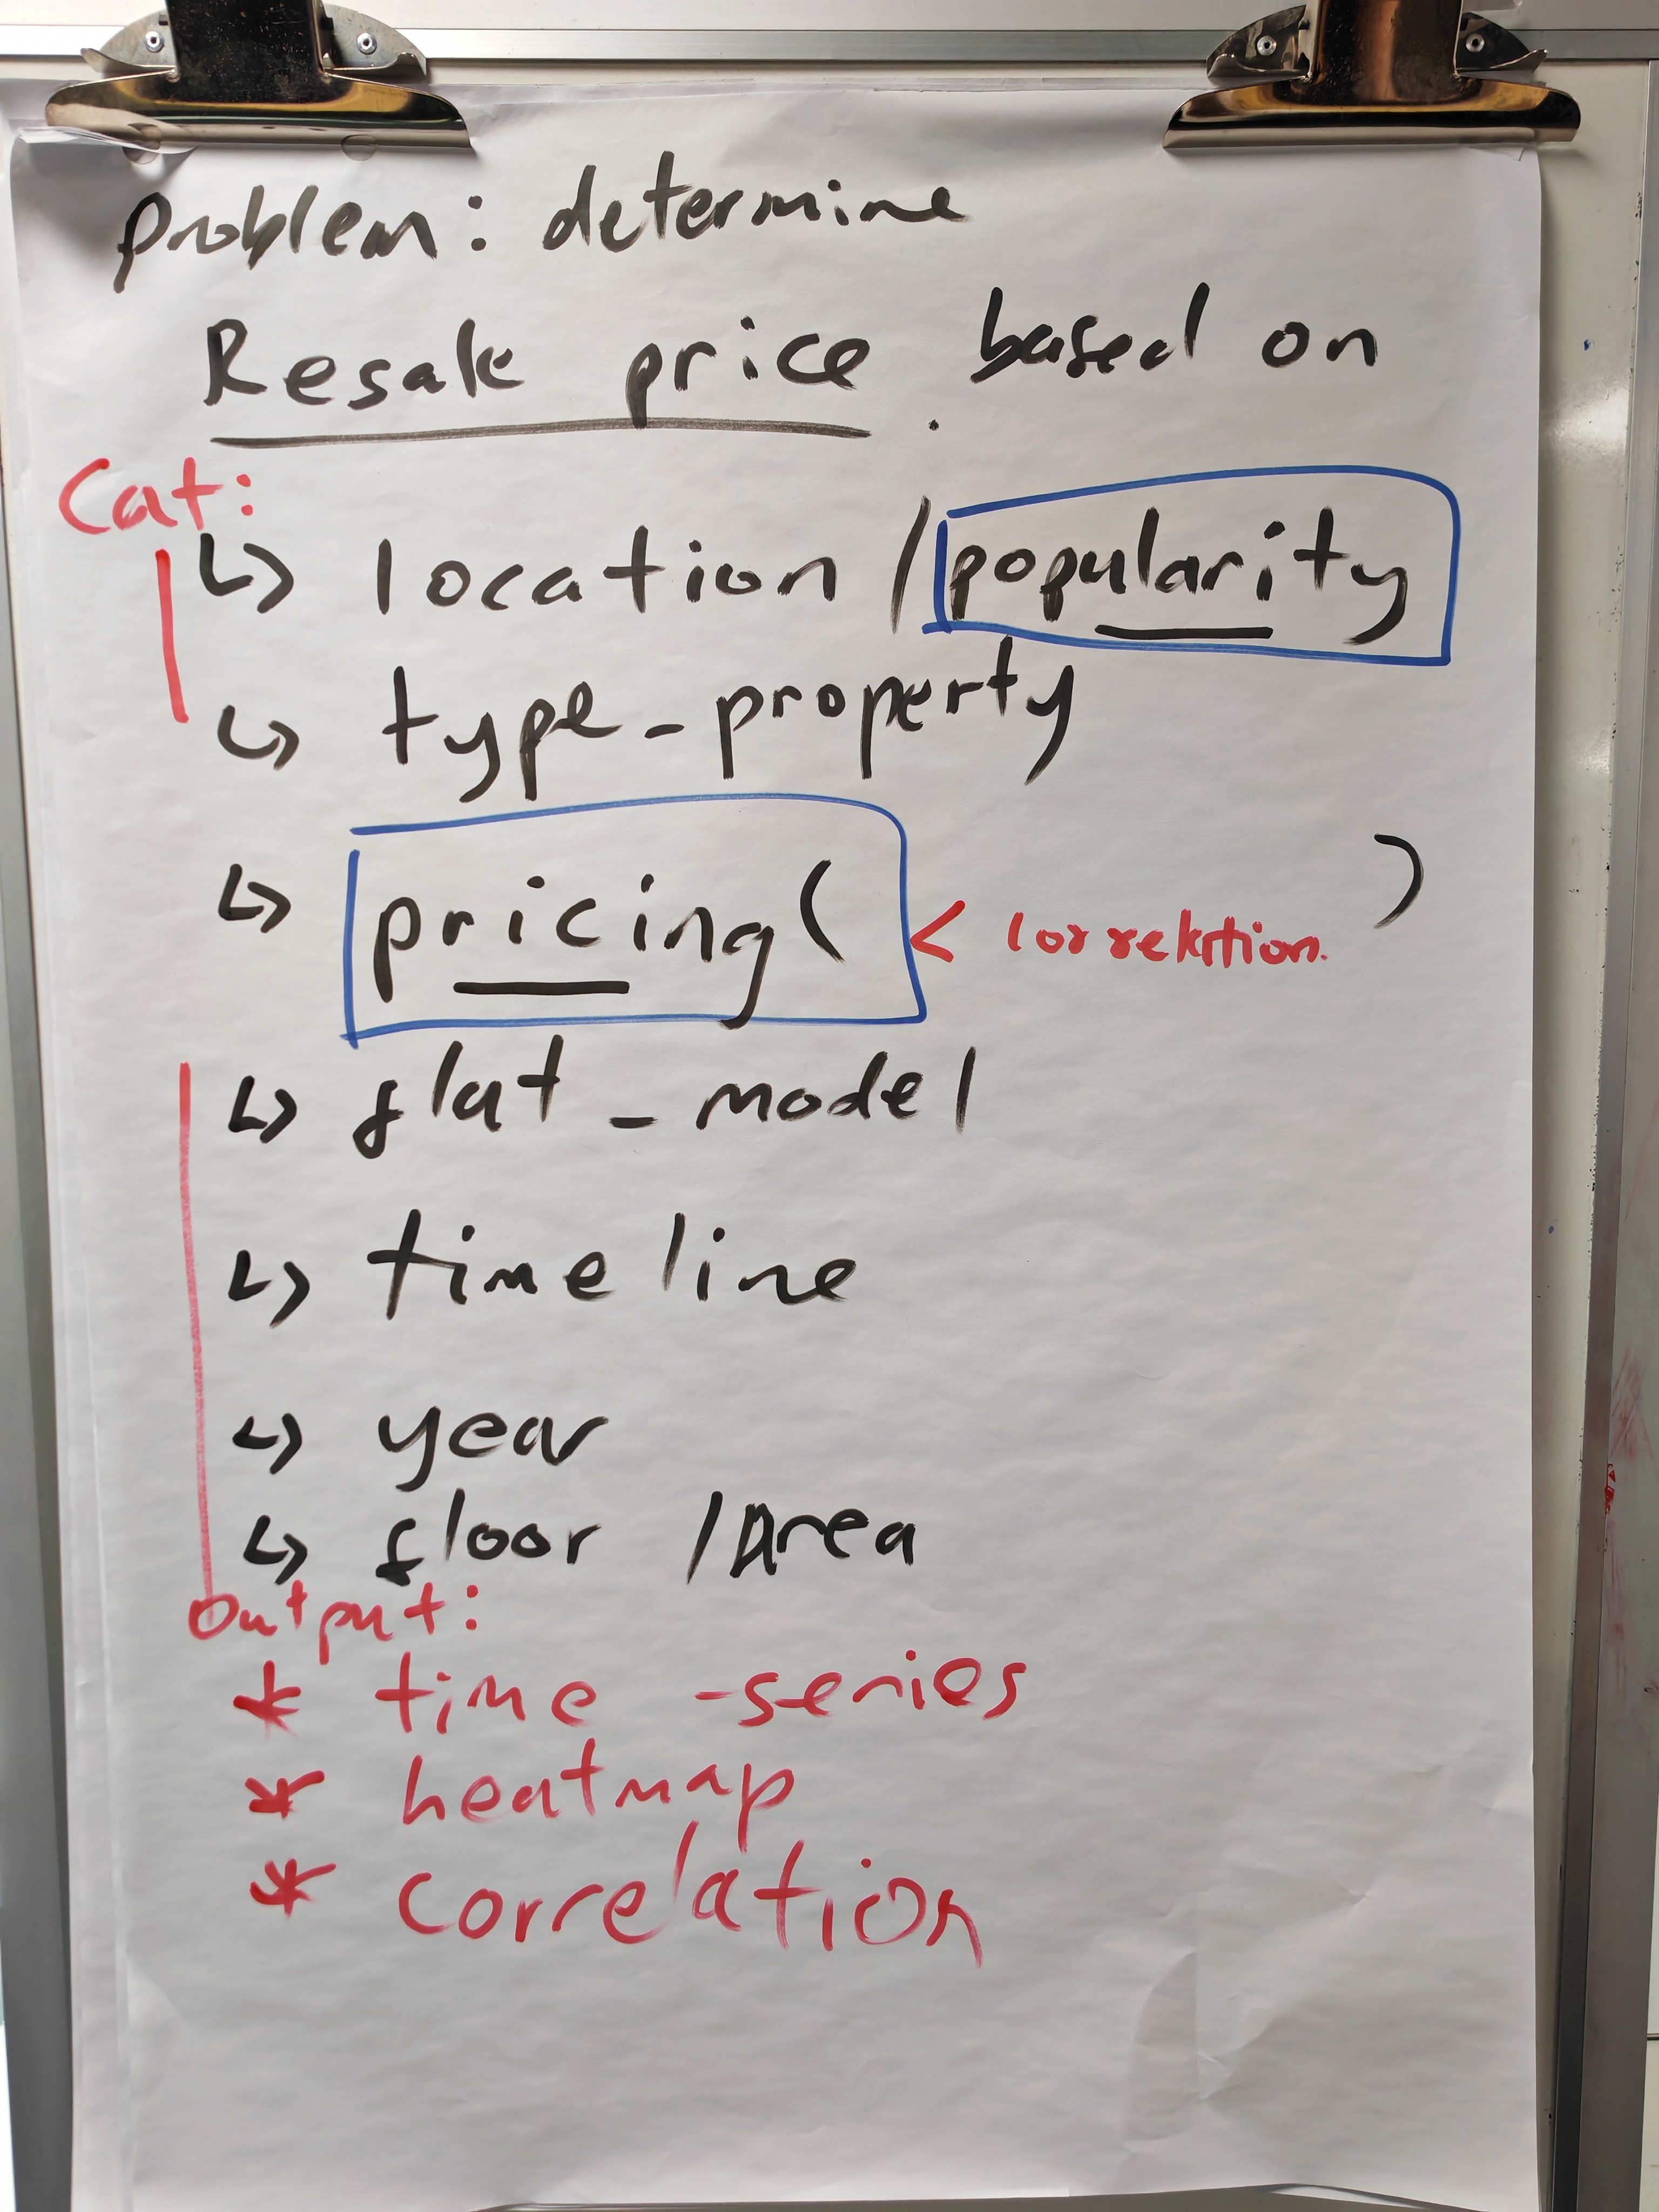 Problem: determine
Resale price based on
Cat:
↳ location / popularity
↳ type_property
↳ pricing ( < correlation. )
↳ flat_model
↳ timeline
↳ year
↳ floor / Area
Output:
* time-series
* heatmap
* correlation